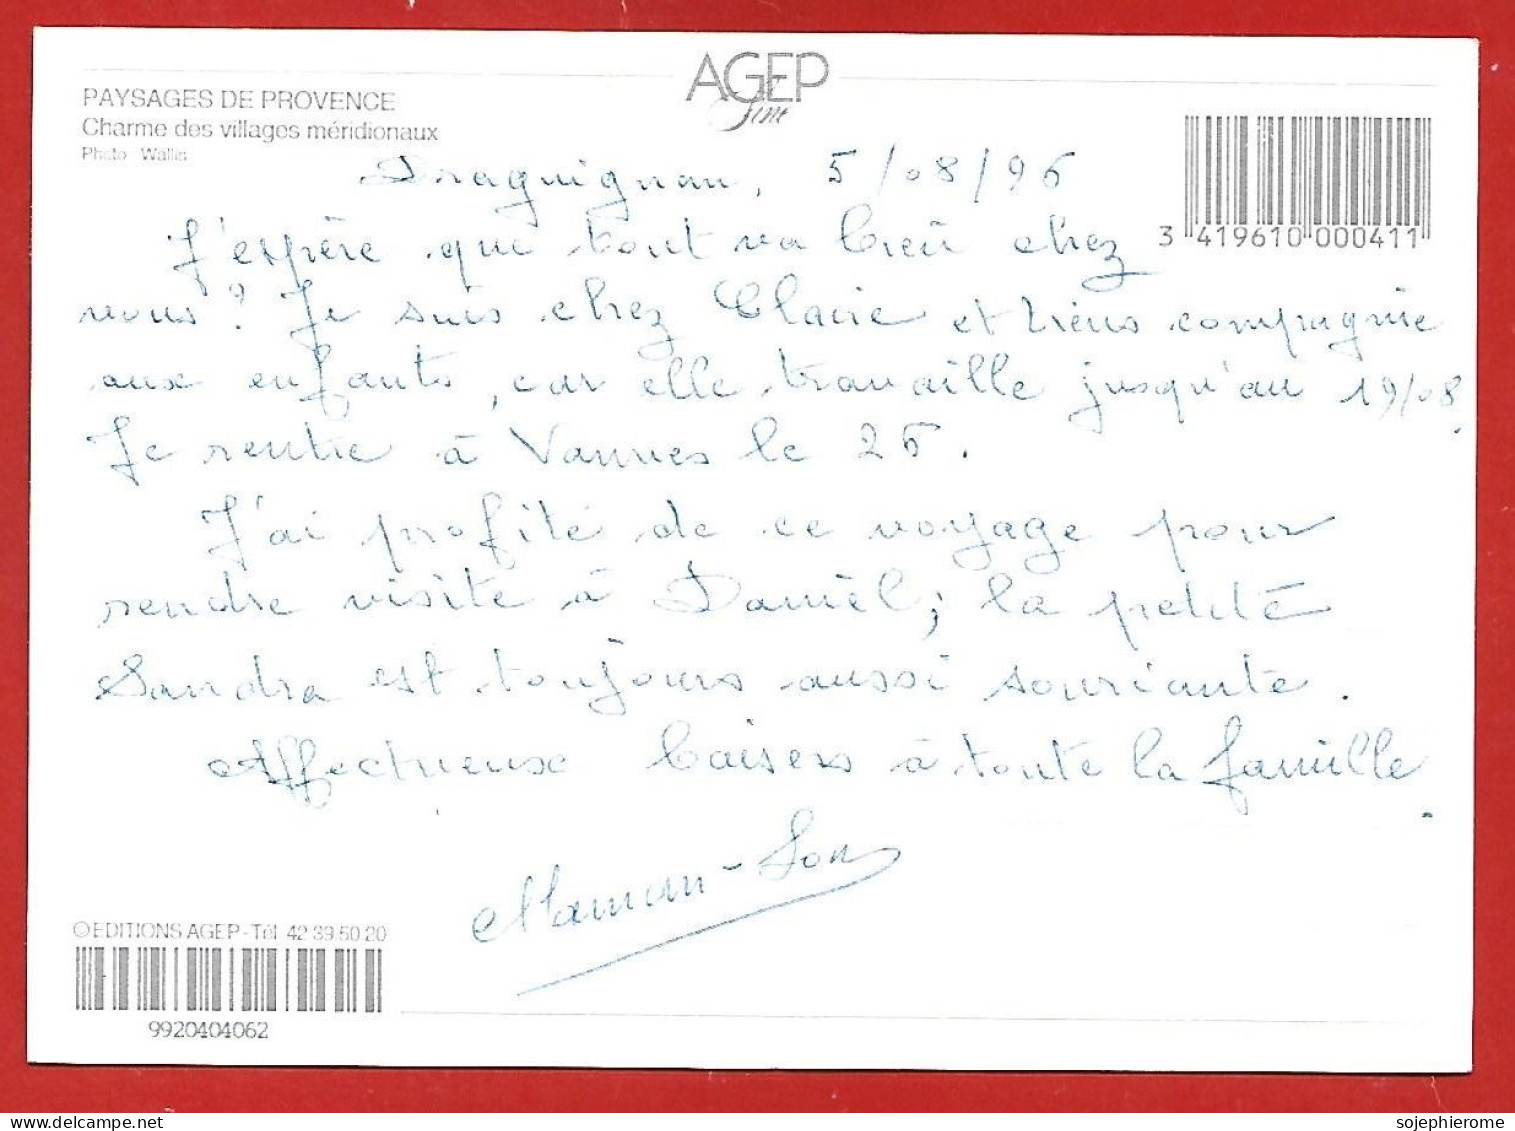 AGEP
fine
PAYSAGES DE PROVENCE
Charme des villages méridionaux
Photo Wallis
Draguignan, 5/08/96
3 419610 000411
J'espère que tout va bien chez
vous? Je suis chez Claire et tiens compagnie
aux enfants, car elle travaille jusqu'au 19/08.
Je rentre à Vannes le 26.
J'ai profité de ce voyage pour
rendre visite à Daniel; la petite
Sandra est toujours aussi souriante.
Affectueux baisers à toute la famille.
Maman-
©EDITIONS AGEP-Tél 42 39 50 20
9920404062
sojephierome